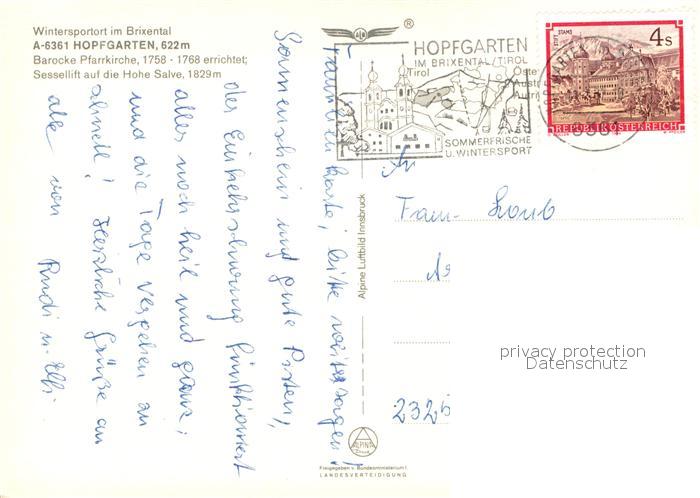 Wintersportort im Brixental
A-6361 HOPFGARTEN, 622m
Barocke Pfarrkirche, 1758 - 1768 errichtet;
Sessellift auf die Hohe Salve, 1829m
®
HOPFGARTEN
IM BRIXENTAL/TIROL
Tirol
SOMMERFRISCHE
U. WINTERSPORT
STIFT STAMS
4 s
REPUBLIK ÖSTERREICH
Sonnenschein und gute Pisten,
der Einkehrschwung funktioniert
alles noch heil und ganz;
und die Tage vergehen zu
schnell! Herzliche Grüße an
alle von Rudi u. Elfi.
bitte weitersagen!
Alpine Luftbild Innsbruck
An
Fam.
2325
privacy protection
Datenschutz
ALPINA
Freigegeben v. Bundesministerium f.
LANDESVERTEIDIGUNG